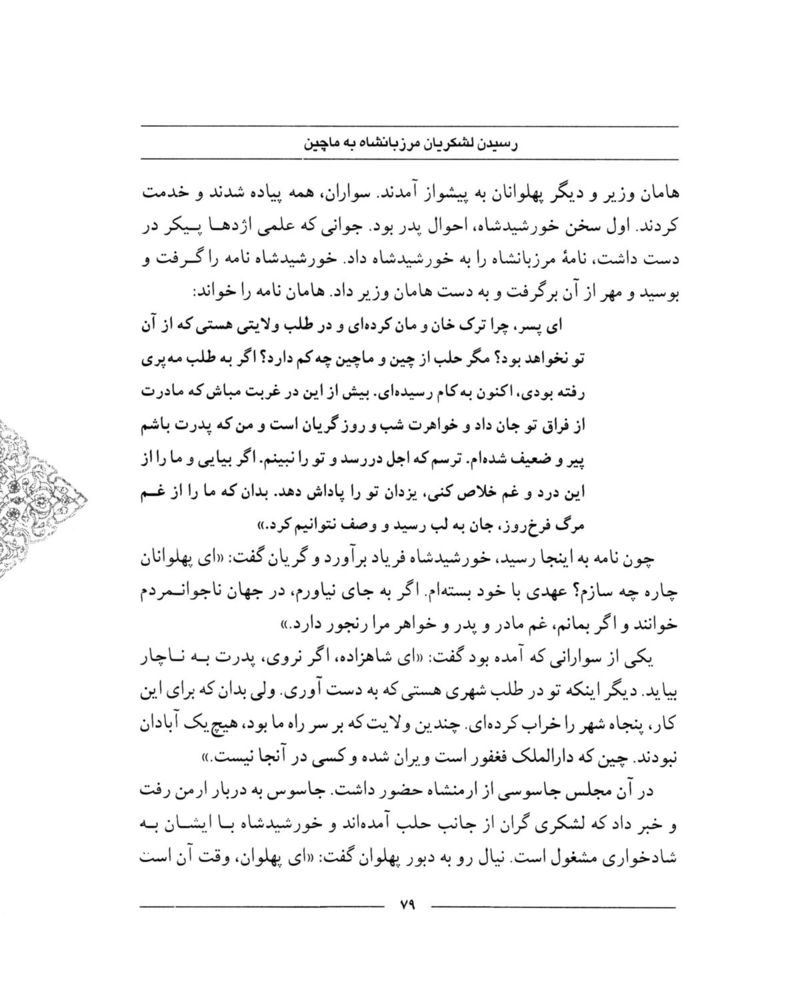 رسیدن لشکریان مرزبانشاه به ماچین
هامان وزیر و دیگر پهلوانان به پیشواز آمدند. سواران، همه پیاده شدند و خدمت
کردند. اول سخن خورشیدشاه، احوال پدر بود. جوانی که علمی اژدها پیکر در
دست داشت، نامهٔ مرزبانشاه را به خورشیدشاه داد. خورشیدشاه نامه را گرفت و
بوسید و مهر از آن برگرفت و به دست هامان وزیر داد. هامان نامه را خواند:
ای پسر، چرا ترک خان و مان کرده‌ای و در طلب ولایتی هستی که از آن
تو نخواهد بود؟ مگر حلب از چین و ماچین چه کم دارد؟ اگر به طلب مه‌پری
رفته بودی، اکنون به کام رسیده‌ای. بیش از این در غربت مباش که مادرت
از فراق تو جان داد و خواهرت شب و روز گریان است و من که پدرت باشم
پیر و ضعیف شده‌ام. ترسم که اجل دررسد و تو را نبینم. اگر بیایی و ما را از
این درد و غم خلاص کنی، یزدان تو را پاداش دهد. بدان که ما را از غم
مرگ فرخ‌روز، جان به لب رسید و وصف نتوانیم کرد.»
چون نامه به اینجا رسید، خورشیدشاه فریاد برآورد و گریان گفت: «ای پهلوانان
چاره چه سازم؟ عهدی با خود بسته‌ام. اگر به جای نیاورم، در جهان ناجوانمردم
خوانند و اگر بمانم، غم مادر و پدر و خواهر مرا رنجور دارد.»
یکی از سوارانی که آمده بود گفت: «ای شاهزاده، اگر نروی، پدرت به ناچار
بیاید. دیگر اینکه تو در طلب شهری هستی که به دست آوری. ولی بدان که برای این
کار، پنجاه شهر را خراب کرده‌ای. چندین ولایت که بر سر راه ما بود، هیچ‌یک آبادان
نبودند. چین که دارالملک فغفور است ویران شده و کسی در آنجا نیست.»
در آن مجلس جاسوسی از ارمنشاه حضور داشت. جاسوس به دربار ارمن رفت
و خبر داد که لشکری گران از جانب حلب آمده‌اند و خورشیدشاه با ایشان به
شادخواری مشغول است. نیال رو به دبور پهلوان گفت: «ای پهلوان، وقت آن است
۷۹